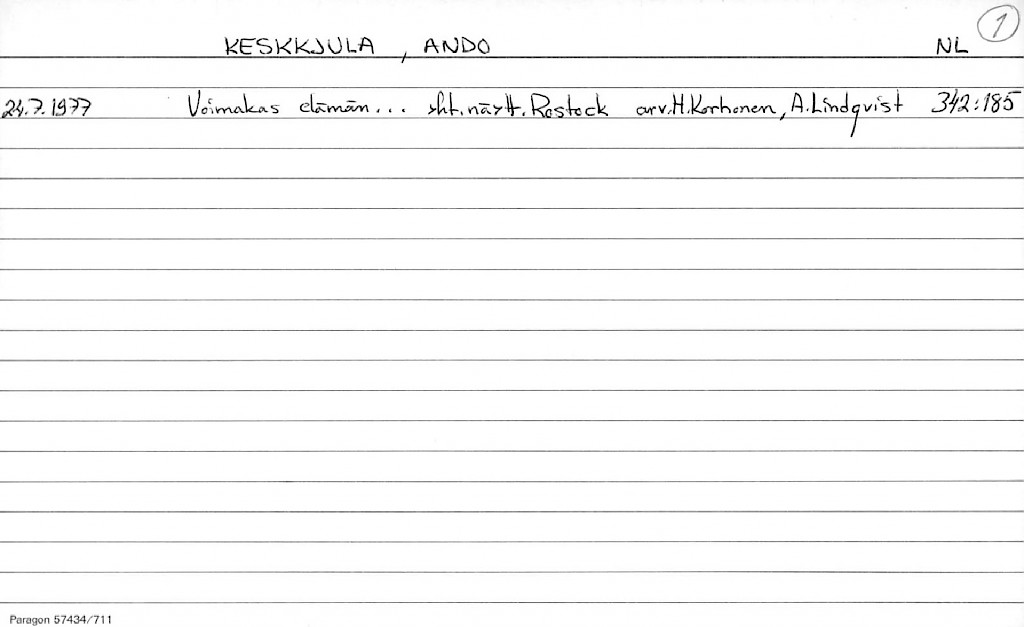 1
KESKKJULA, ANDO NL
24.7.1977 Voimakas elämän... yht.näytt. Rostock arv. H. Korhonen, A. Lindqvist 342:185
Paragon 57434/711